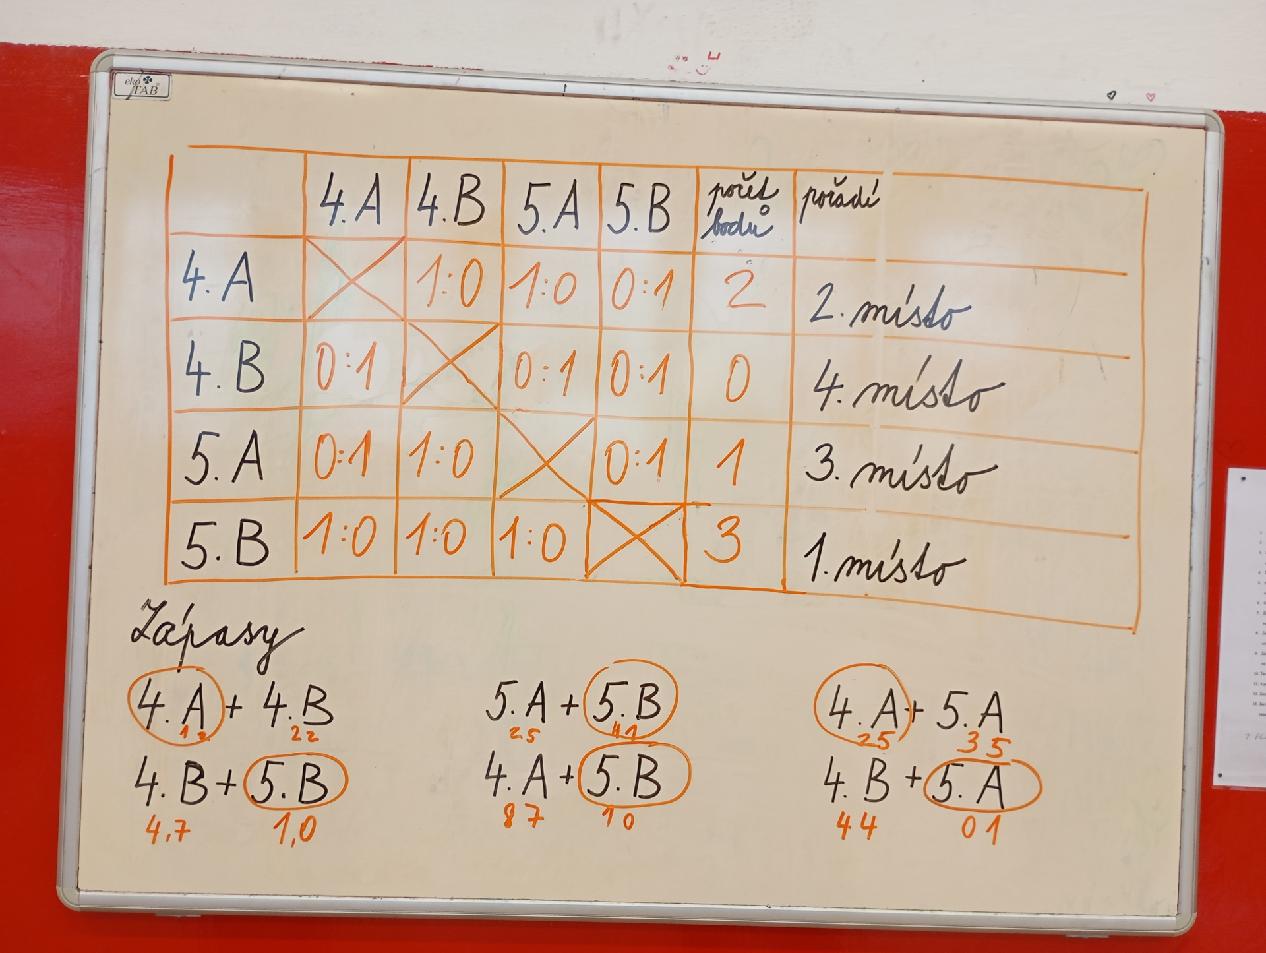 eko TAB
4.A 4.B 5.A 5.B počet bodů pořadí
4.A 1:0 1:0 0:1 2 2. místo
4.B 0:1 0:1 0:1 0 4. místo
5.A 0:1 1:0 0:1 1 3. místo
5.B 1:0 1:0 1:0 3 1. místo
Zápasy
4.A + 4.B 5.A + 5.B 4.A + 5.A
22 25 25 35
4.B + 5.B 4.A + 5.B 4.B + 5.A
4,7 1,0 87 10 44 01